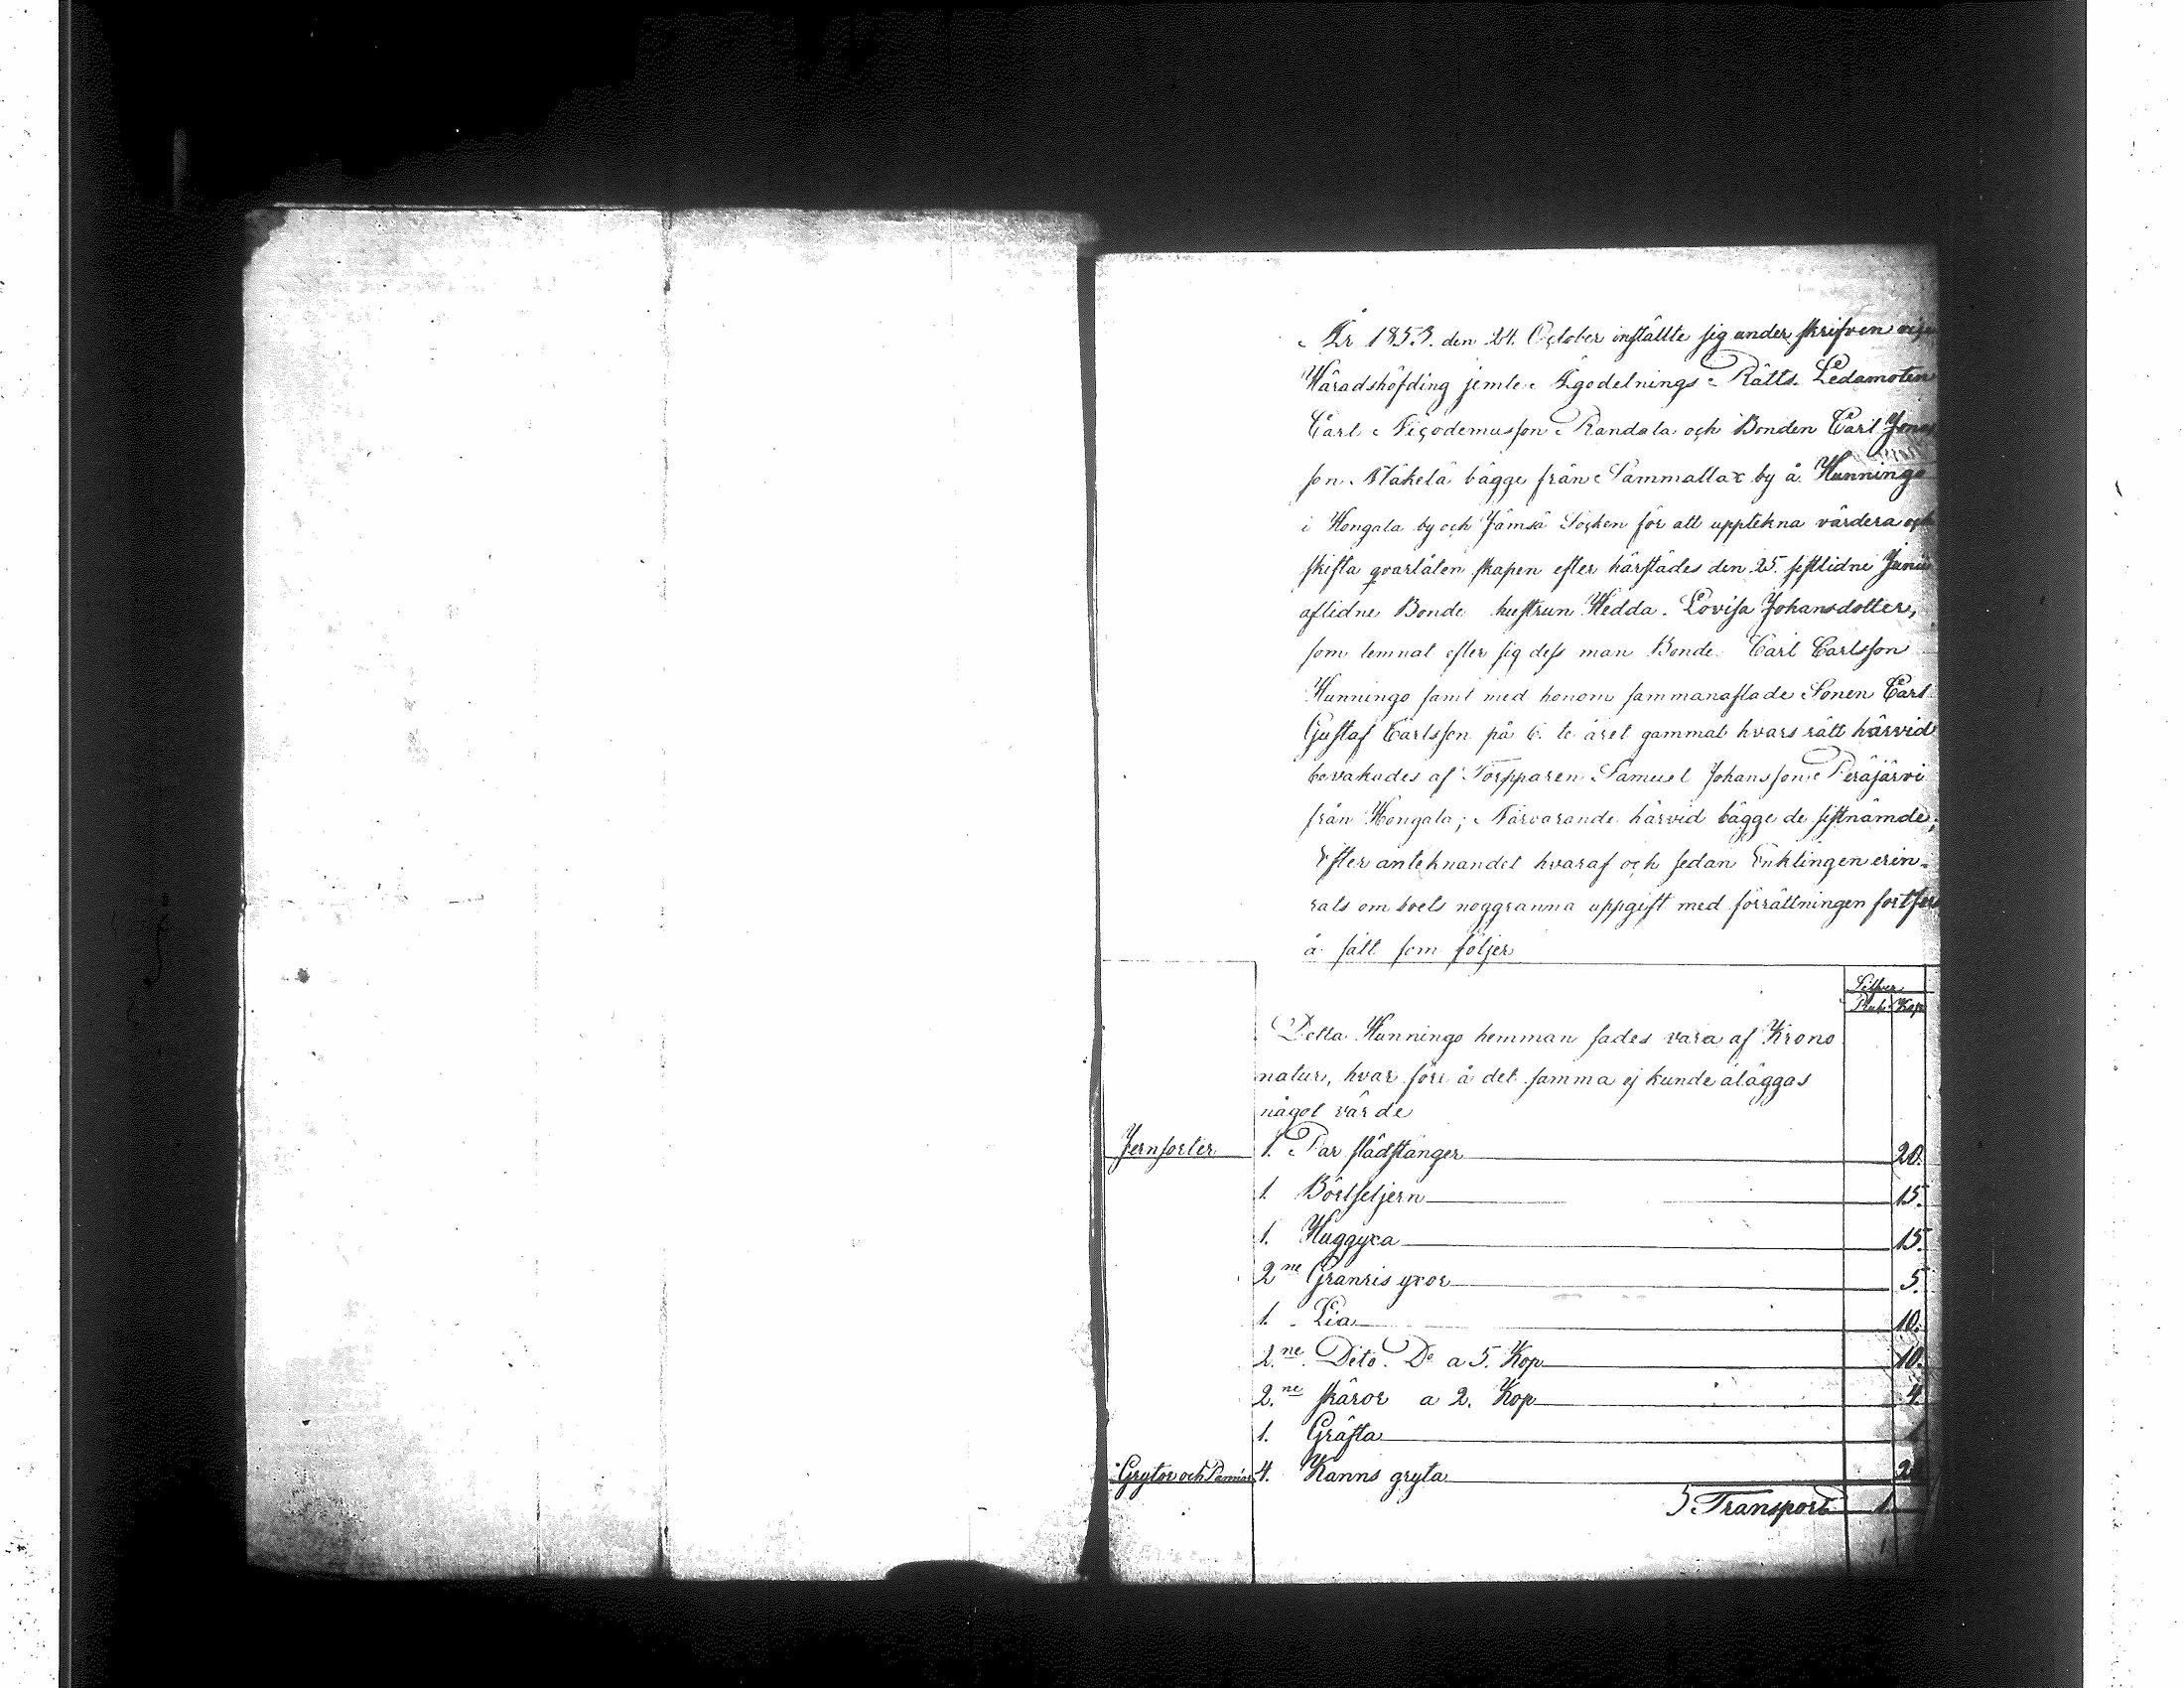 År 1853. den 24. October inställte sig under skrifven
Häradshöfding jemte Ägodelnings Rätts Ledamoten
Carl Nicodemusson Randala och Bonden Carl Jonas
son Mäkelä bägge från Sammallax by å Hunningo
i Hongala by och Jämsä Socken för att upptekna värdera och
skifta qvarlåten skapen efter härstädes den 25. sistlidne Junii
aflidne Bonde hustrun Hedda Lovisa Johansdotter,
som lemnat efter sig dess man Bonde Carl Carlsson
Hunningo samt med honom sammanaflade Sonen Carl
Gustaf Carlsson på 6.te året gammal hvars rätt härvid
bevakades af Torpparen Samuel Johansson Peräjärvi
från Hongala; Närvarande härvid bägge de sistnämde;
Efter anteknandet hvaraf och sedan Enklingen erin-
rats om boets noggranna uppgift med förrättningen
å sätt som följer
Silfver
Rub Kop
Detta Hunningo hemman sades vara af Krono
natur, hvar före å det samma ej kunde åläggas
något värde
Jernsorter 1. Par slädstänger 20.
1. 15.
1. Huggyxa 15.
2ne Granris yxor 5.
1. Lia 10.
2ne Dito Do a 5. Kop 10.
2.ne skäror a 2. Kop 4.
1. Gräfta
Grytor och Pannor 4. Kanns gryta
Transport 1